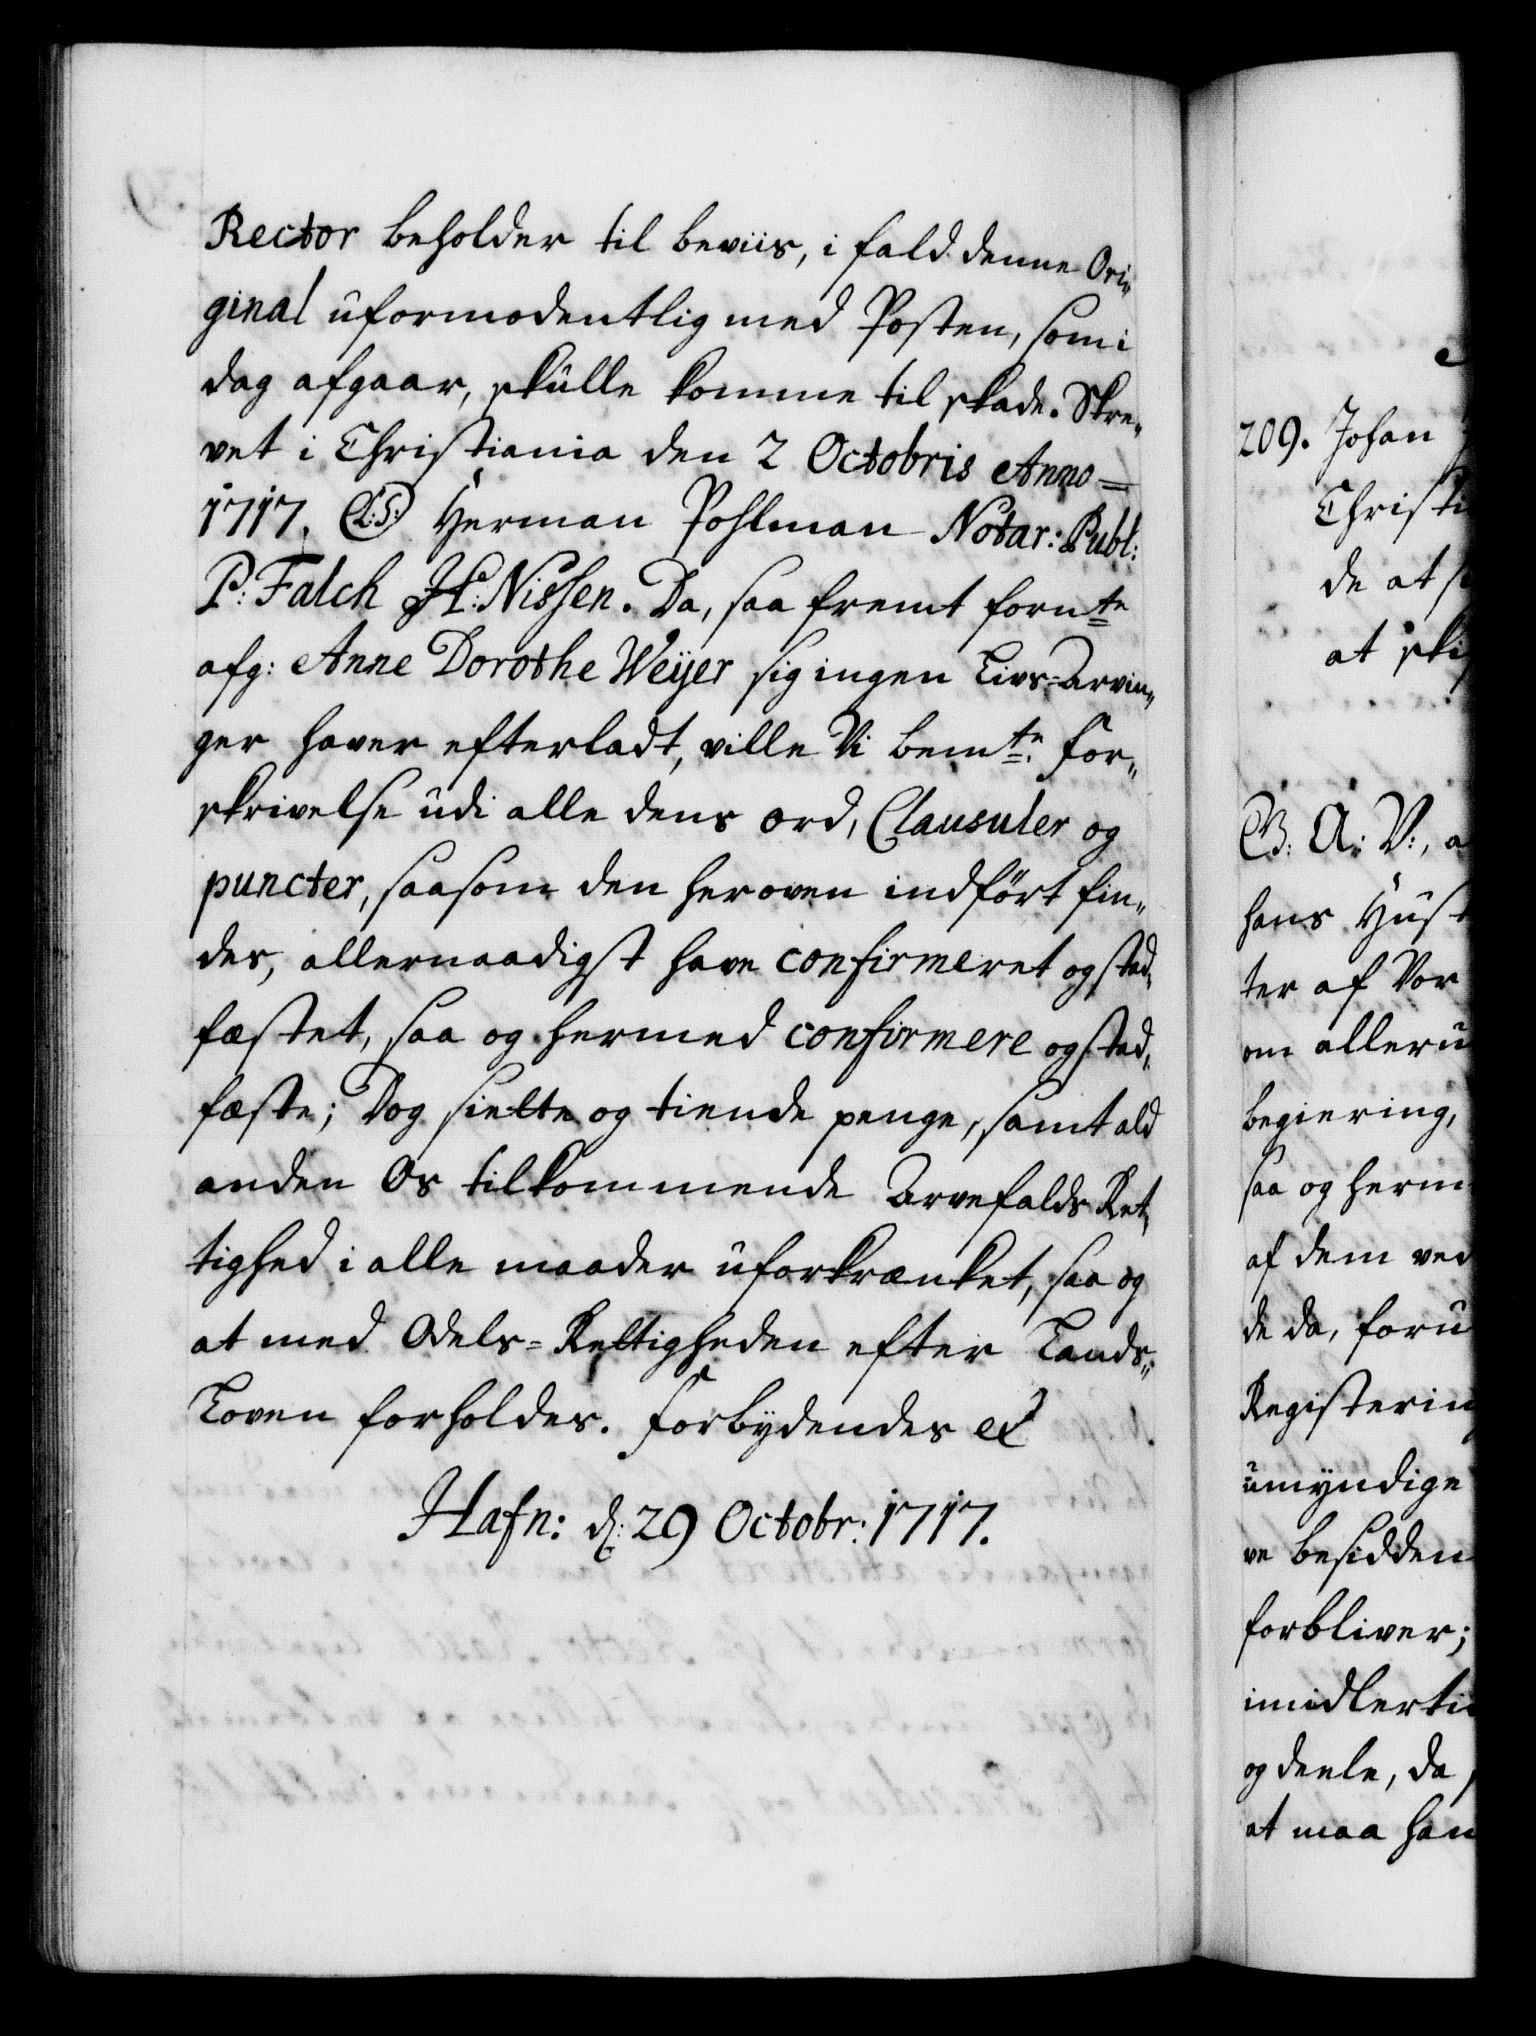 Rector beholder til beviis, i fald denne Ori„
ginal uformodentlig med Posten, som i
dag afgaar, skulle komme til skade. Skre„
vet i Christiania den 2 Octobris Anno
1717. (L:S:) Herman Pohlman Notar: Publ:
P: Falch H: Nissen. Da, saa fremt fornte
afg: Anne Dorothe Weyer sig ingen Livs-Arvin„
ger haver efterladt, ville Vi bemte For„
skrivelse udi alle dens ord, Clausuler og
puncter, saasom den heroven indført fin„
des, allernaadigst have confirmeret og stad„
fæstet, saa og hermed confirmere og stad„
fæste; Dog siette og tiende penge, samt ald
anden Os tilkommende Arvefalds Ret„
tighed i alle maader uforkrænket, saa og
at med Odels-Rettigheden efter Lands„
Loven forholdes. Forbydendes etc
Hafn: d: 29 Octobr: 1717.
209. Johan
Christi
de at
at ski
G: A: V:, a
hans Hust
ter af Vor
om alleru
begiering,
saa og herm
af dem ved
de da, foru
Registerin
umyndige
ve besidden
forbliver;
imidlerti
og deele, da
at maa han